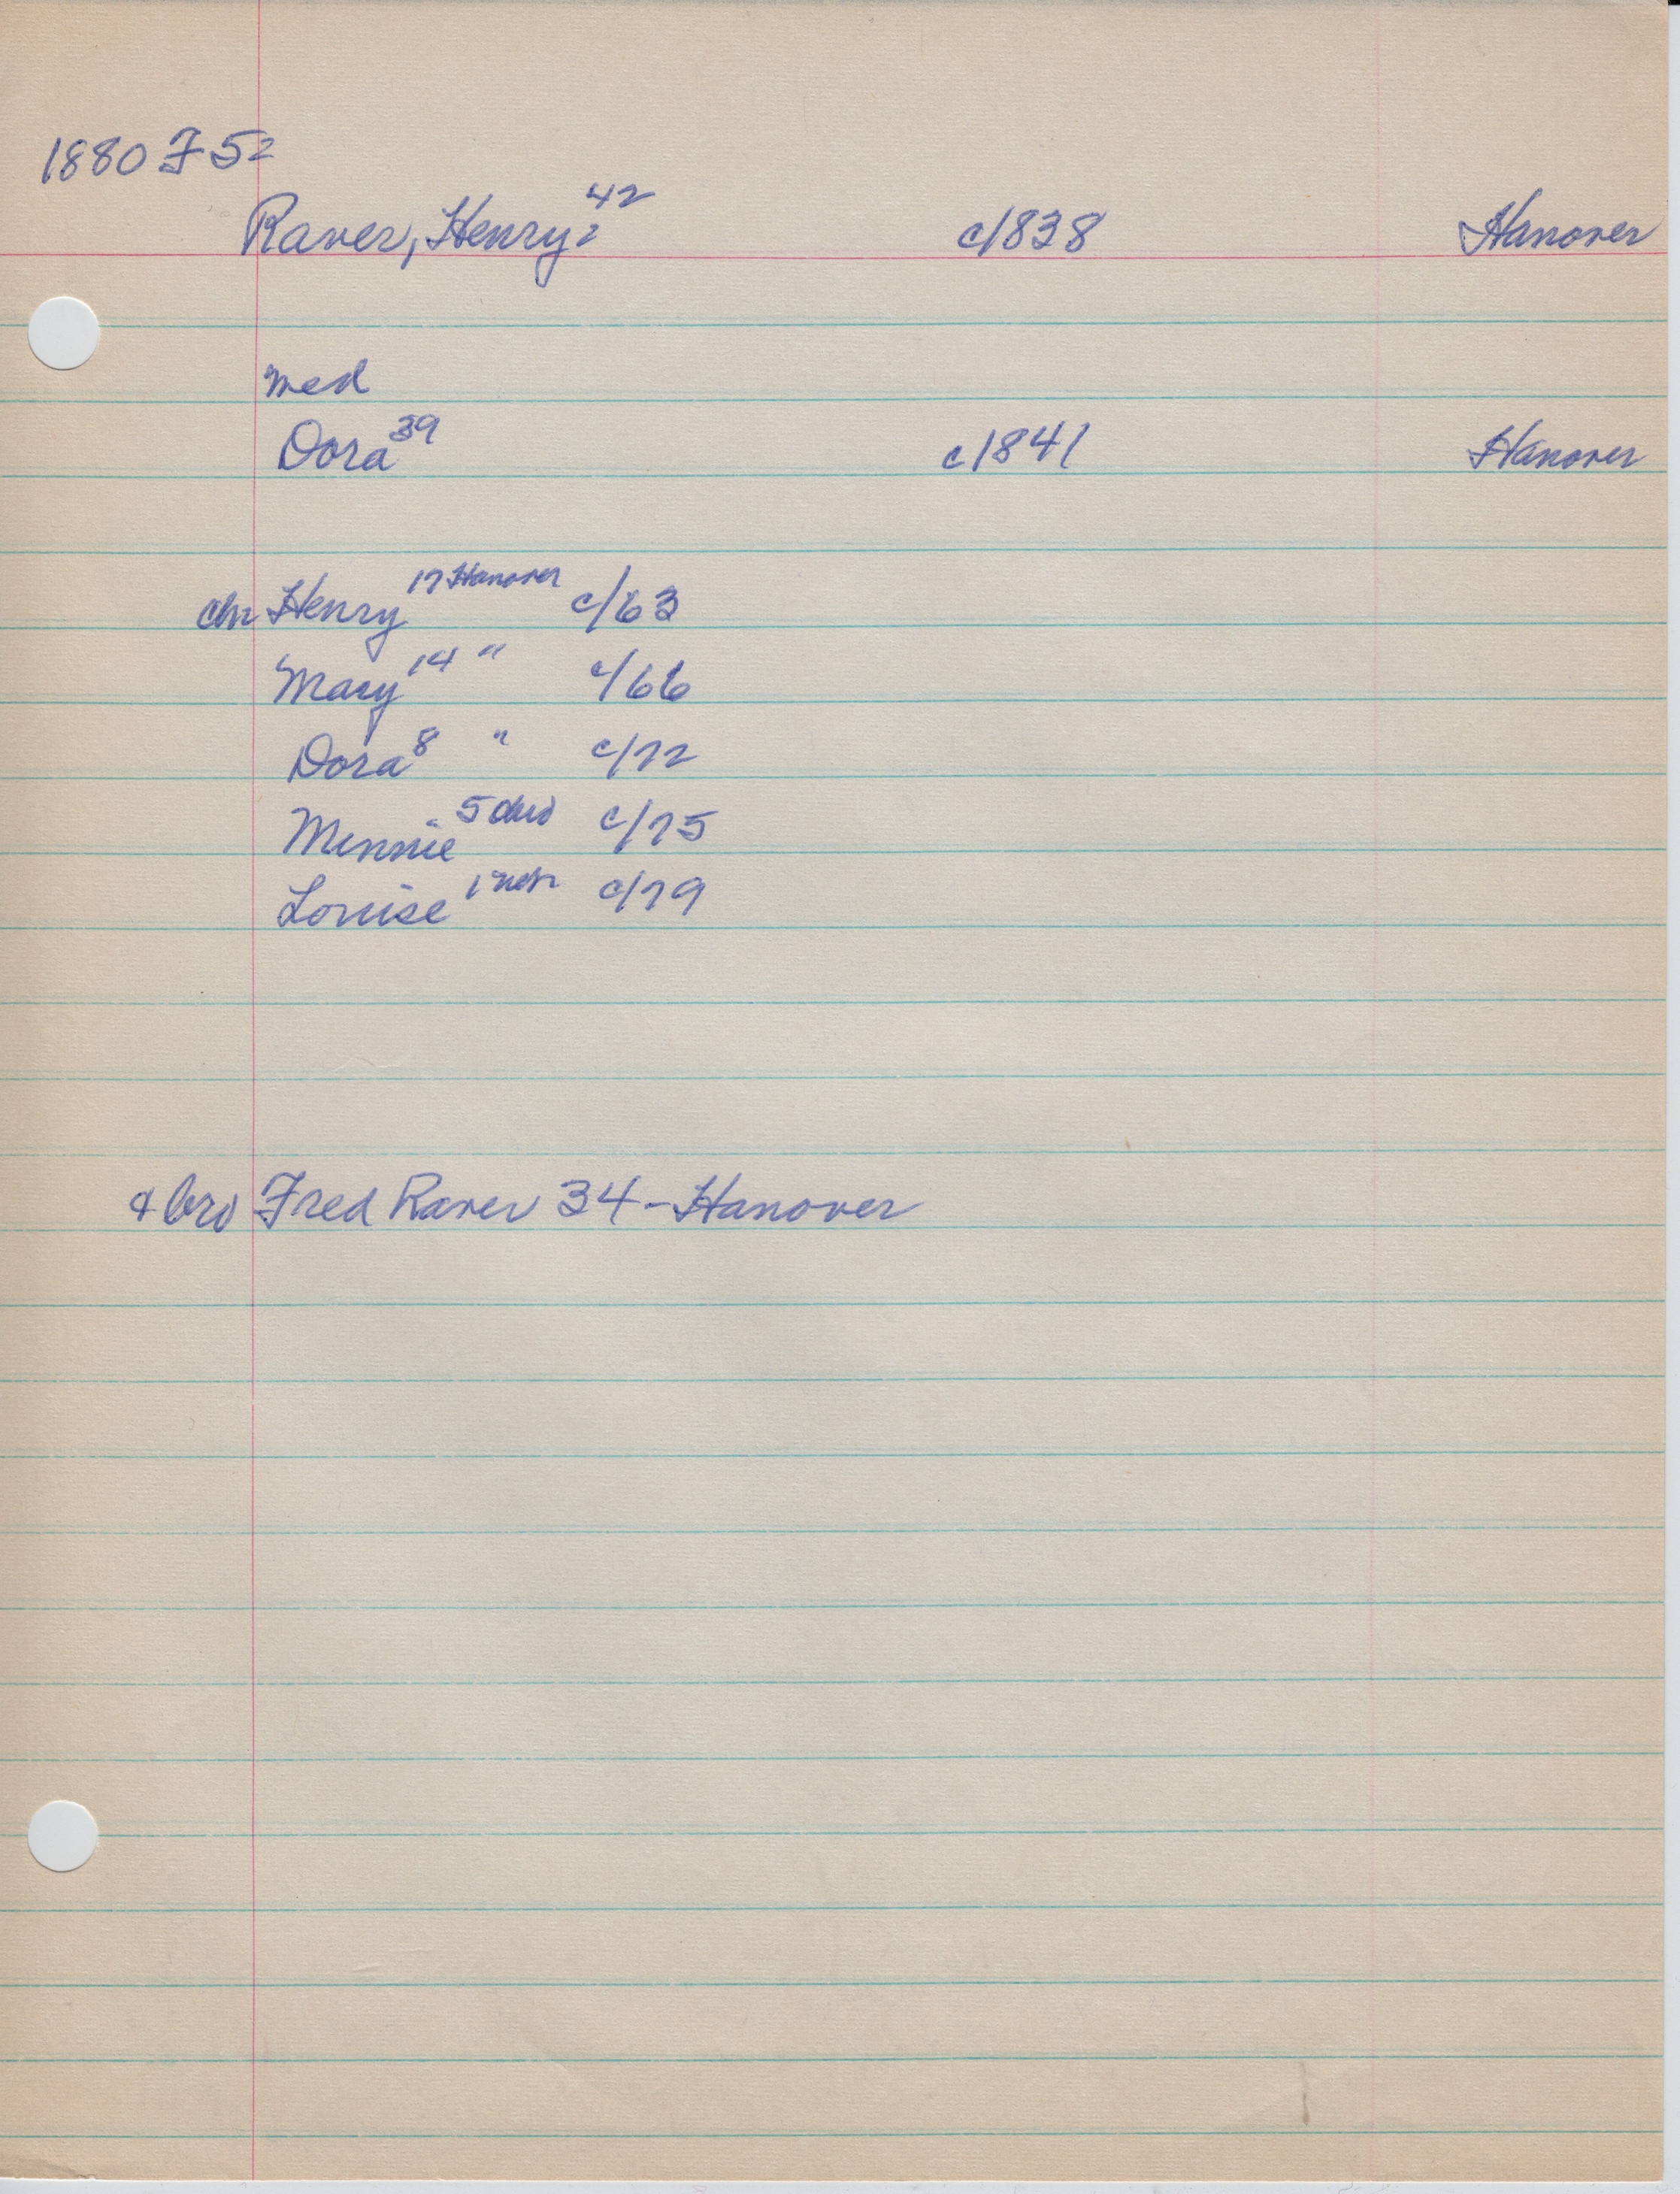 1880 F 52
Raver, Henry 42 c/838 Hanover
med
Dora 39 c1841 Hanover
chn Henry 17 Hanover c/63
Mary 14 " c/66
Dora 8 " c/72
Minnie 5 c/75
Louise 1 c/79
& bro Fred Raver 34 - Hanover